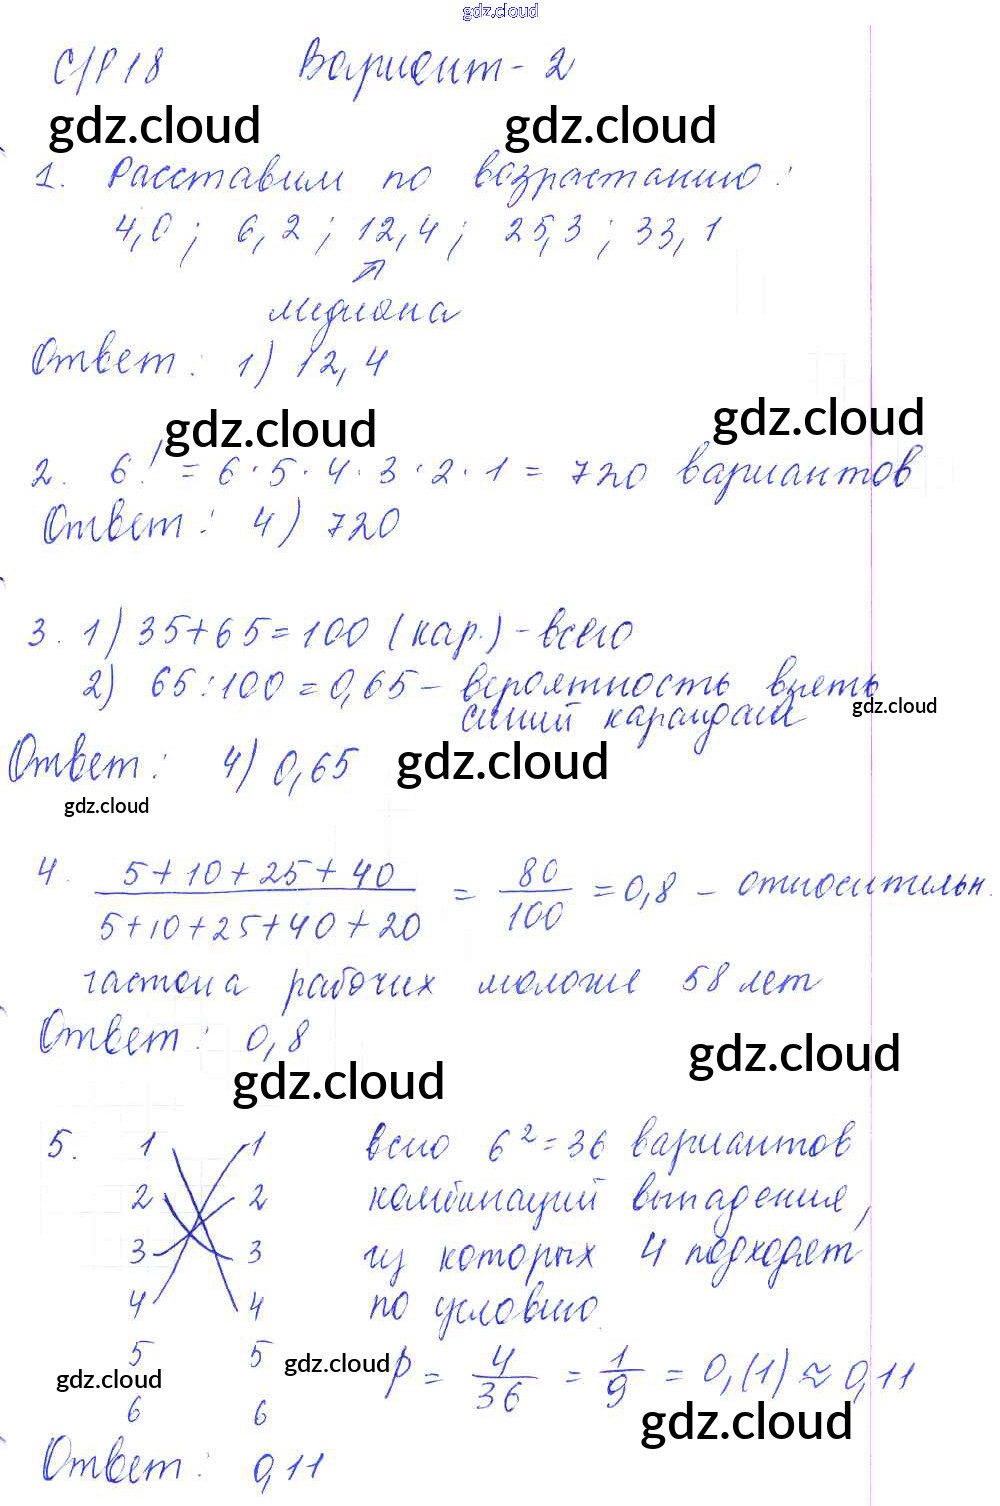 gdz.cloud
С/Р 18 Вариант - 2
gdz.cloud gdz.cloud
1. Расставим по возрастанию:
4,0 ; 6,2 ; 12,4 ; 25,3 ; 33,1
медиана
Ответ: 1) 12,4
gdz.cloud gdz.cloud
2. 6! = 6 · 5 · 4 · 3 · 2 · 1 = 720 вариантов
Ответ: 4) 720
3. 1) 35+65=100 (кар.) - всего
2) 65:100=0,65 - вероятность взять
синий карандаш gdz.cloud
Ответ: 4) 0,65 gdz.cloud
gdz.cloud
4. (5+10+25+40)/(5+10+25+40+20) = 80/100 = 0,8 - относительн.
частота рабочих моложе 58 лет
Ответ: 0,8
gdz.cloud gdz.cloud
5. 1 1 всего 6² = 36 вариантов
2 2 комбинаций выпадения,
3 3 из которых 4 подходят
4 4 по условию.
5 5 P = 4/36 = 1/9 = 0,(1) ≈ 0,11
gdz.cloud gdz.cloud
6 6 gdz.cloud
Ответ: 0,11